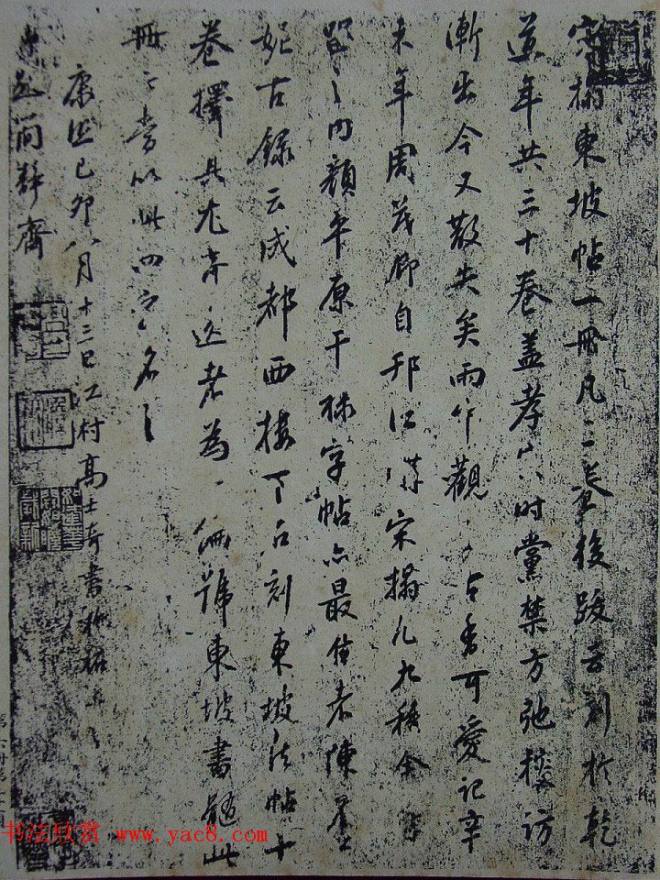 宋搨東坡帖一冊凡二卷後跋云刻於乾
道年共三十卷蓋孝宗時黨禁方弛搜訪
漸出今又散失矣雨中觀之古香可愛記辛
未年周茂卿自邗江購宋搨凡九種余
留之內顏平原干祿字帖亦最佳者陳眉
妮古錄云成都西樓下石刻東坡法帖十
卷擇其尤奇逸者為一編號東坡書髓此
冊亦當以此四字名之
康熙己卯八月十三日江村高士奇書於柘
之簡靜齋
书法欣赏 www.yac8.com